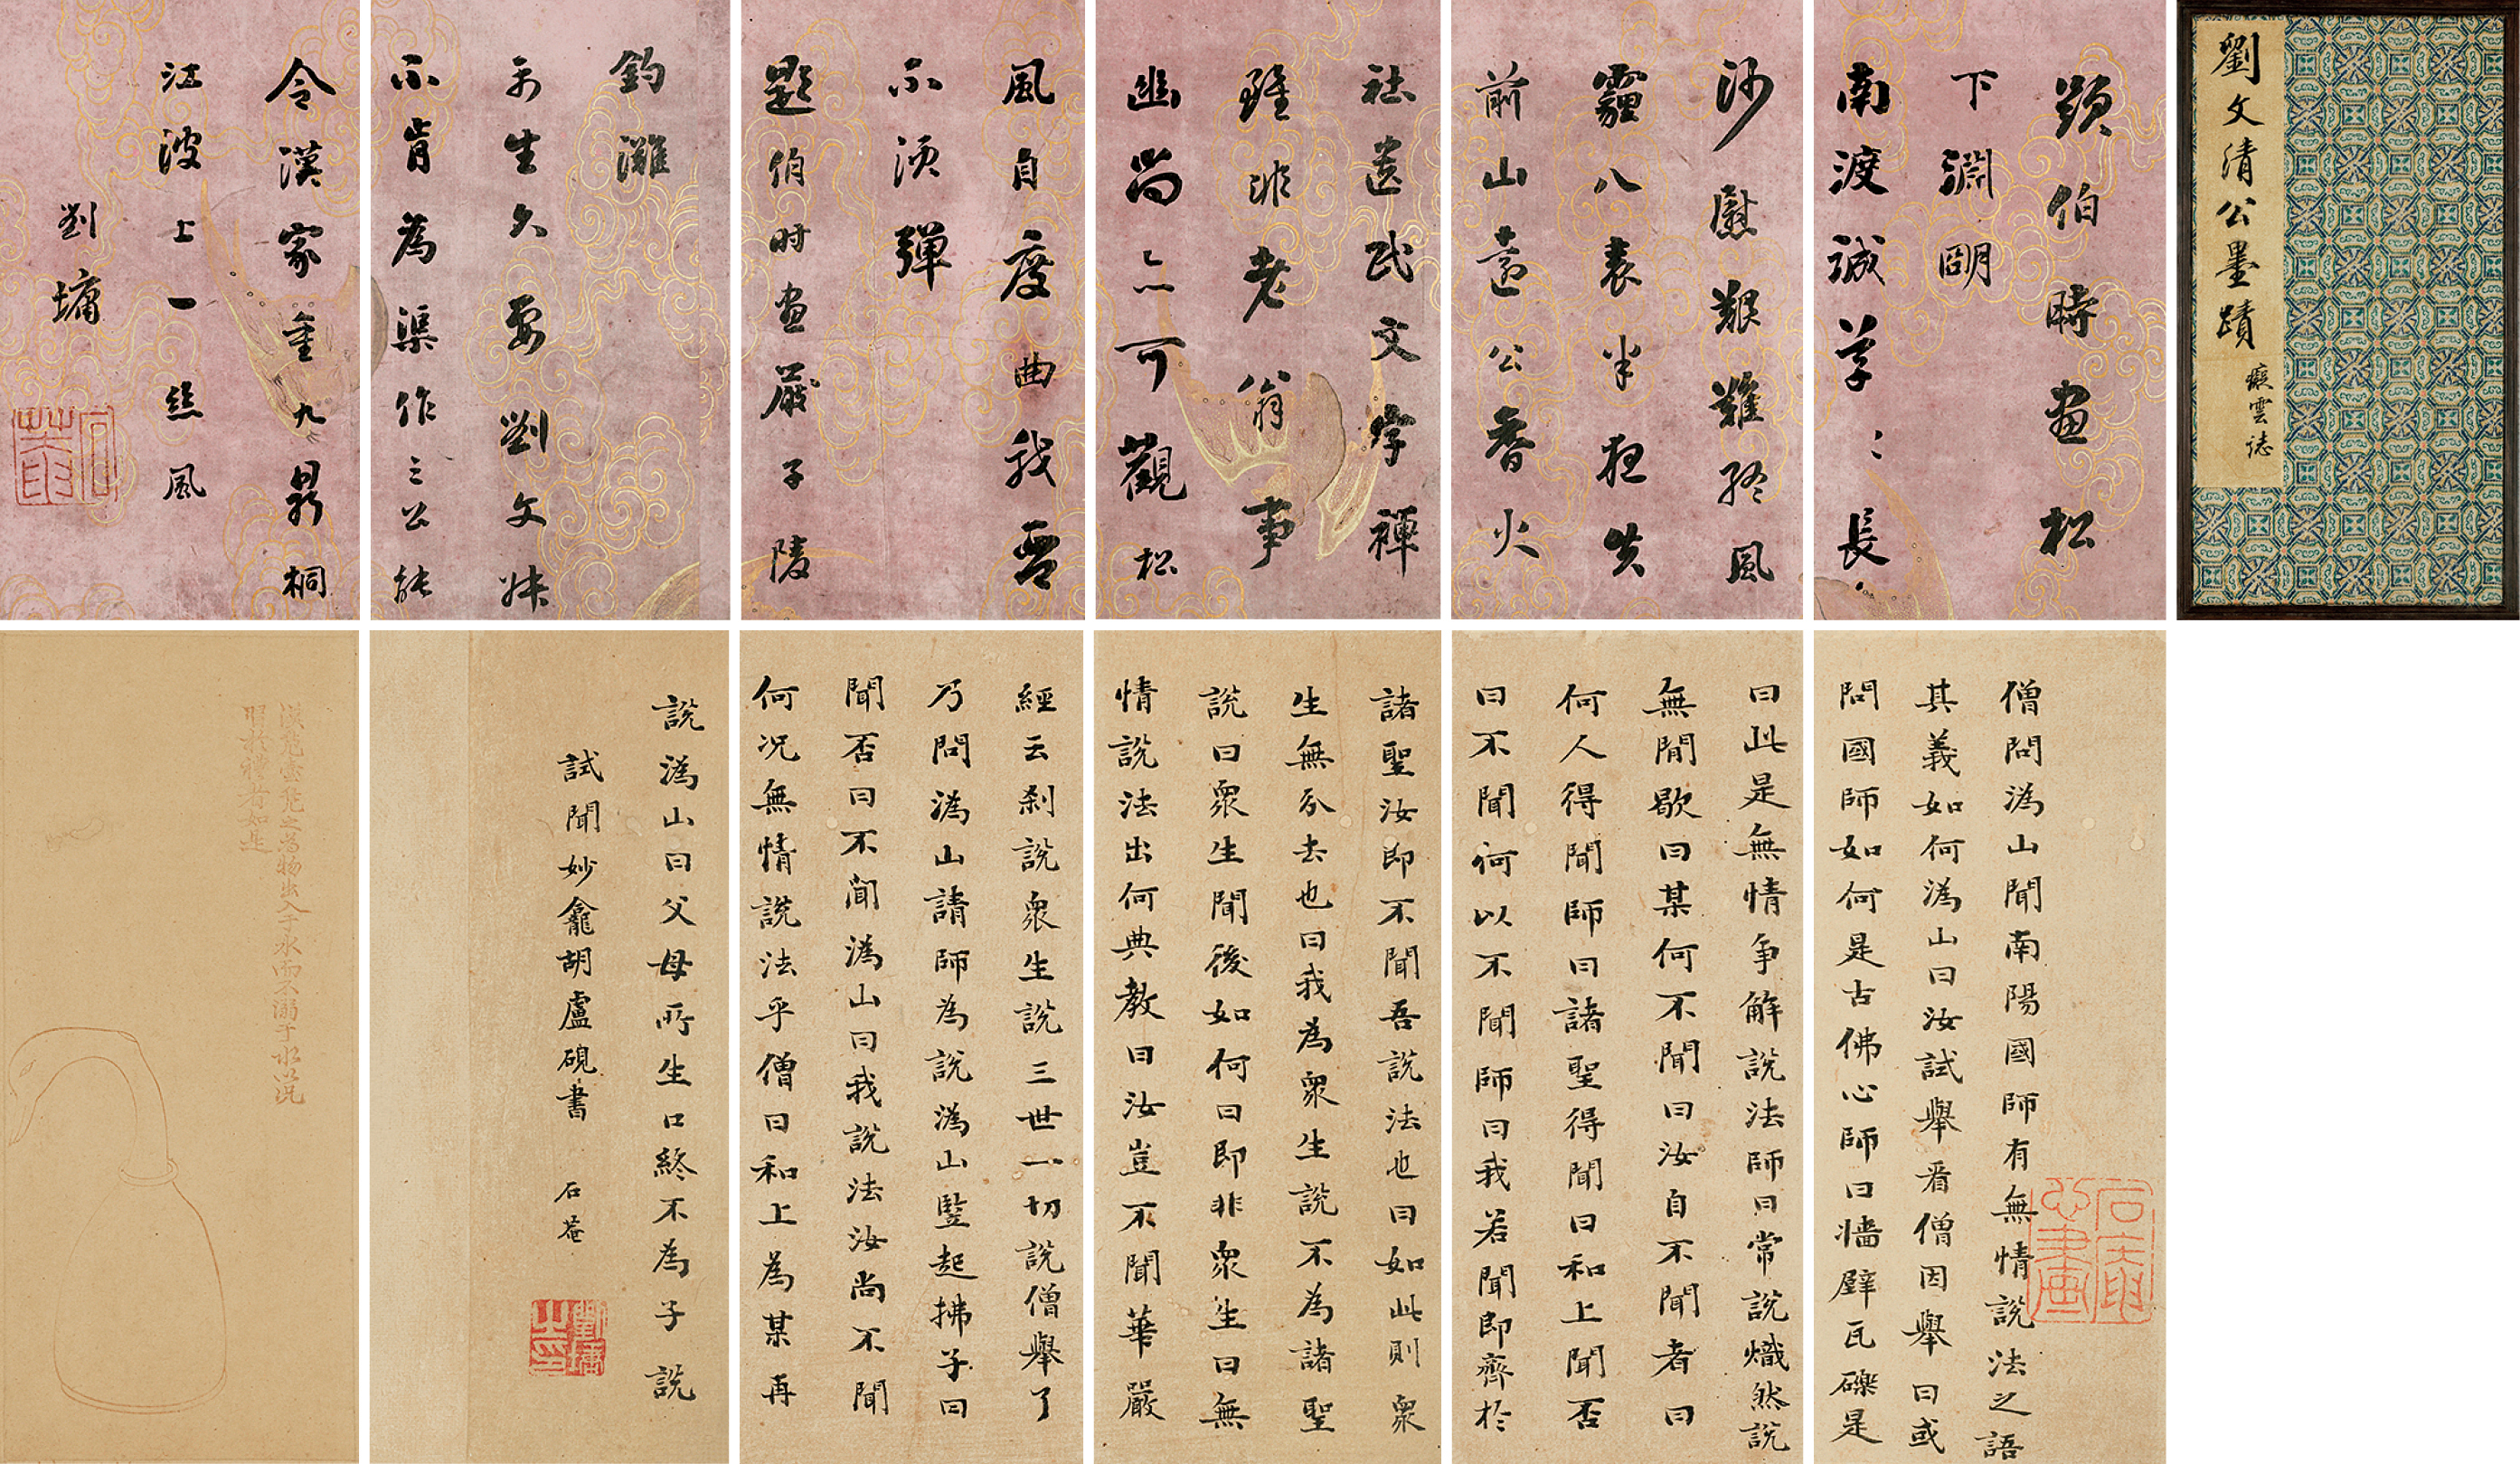 劉文清公墨蹟
癡雲誌
題伯時畫松
下淵明
南渡誠草〻長
沙慰艱難終風
霾八表半夜失
前山遠公香火
社遺民文字禪
雖非老翁事
幽尚亦可觀松
風自度曲我琴
不須彈
題伯時畫嚴子陵
釣灘
平生久要劉文叔
不肯為渠作三公能
令漢家重九鼎桐
江波上一絲風
劉墉
石菴
僧問溈山聞南陽國師有無情說法之語
其義如何溈山曰汝試舉看僧因舉曰或
問國師如何是古佛心師曰牆壁瓦礫是
曰此是無情爭解說法師曰常說熾然說
無閒歇曰某何不聞曰汝自不聞者曰
何人得聞師曰諸聖得聞曰和上聞否
曰不聞何以不聞師曰我若聞即齊於
諸聖汝即不聞吾說法也曰如此則眾
生無分去也曰我為眾生說不為諸聖
說曰眾生聞後如何曰即非眾生曰無
情說法出何典教曰汝豈不聞華嚴
經云剎說眾生說三世一切說僧舉了
乃問溈山請師為說溈山豎起拂子曰
聞否曰不聞溈山曰我說法汝尚不聞
何況無情說法乎僧曰和上為某再
說溈山曰父母所生口終不為子說
試聞妙龕胡盧硯書 石菴
劉墉之印
漢鳧壺鳧之為物出入于水而不溺于水以況
習於禮者如是